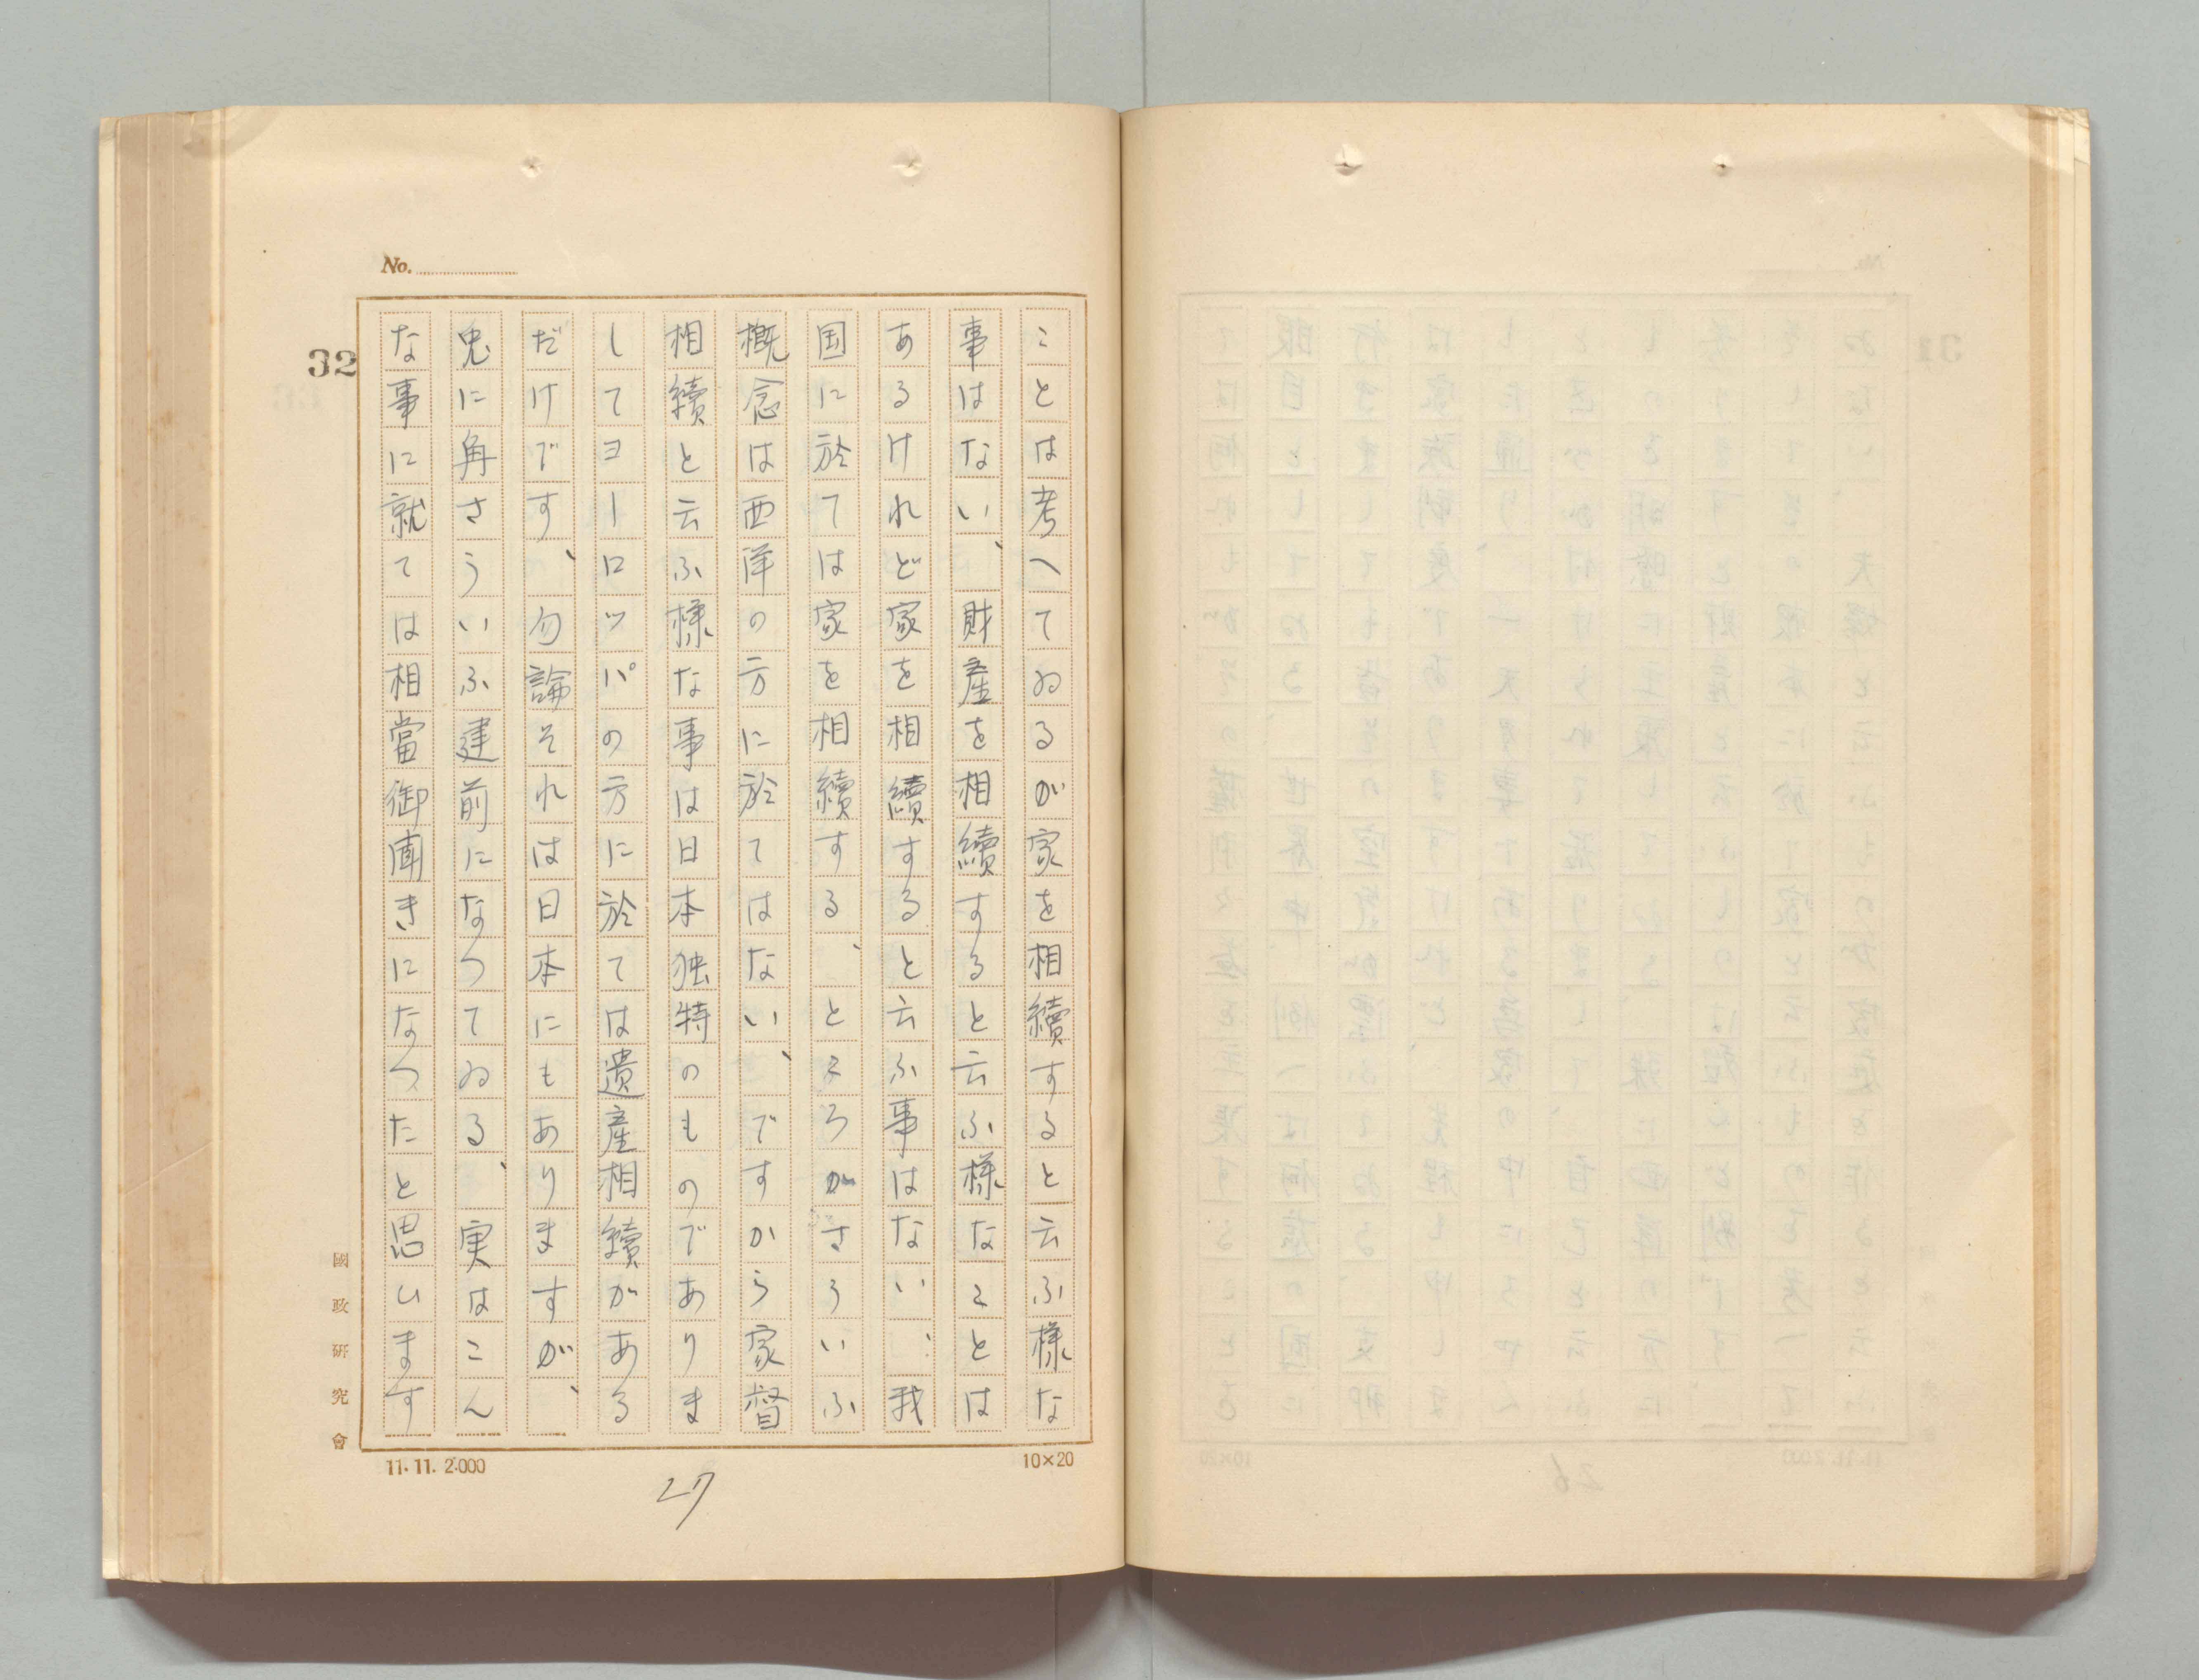 No.
32
ことは考へてゐるが家を相續すると云ふ様な
事はない、財産を相續すると云ふ様なことは
あるけれど家を相續すると云ふ事はない、我
国に於ては家を相續する、ところがさういふ
概念は西洋の方に於てはない、ですから家督
相續と云ふ様な事は日本独特のものでありま
してヨーロッパの方に於ては遺産相續がある
だけです、勿論それは日本にもありますが、
兎に角さういふ建前になつてゐる、実はこん
な事に就ては相當御聞きになつたと思ひます
國政研究會
11.11.2.000
10×20
27